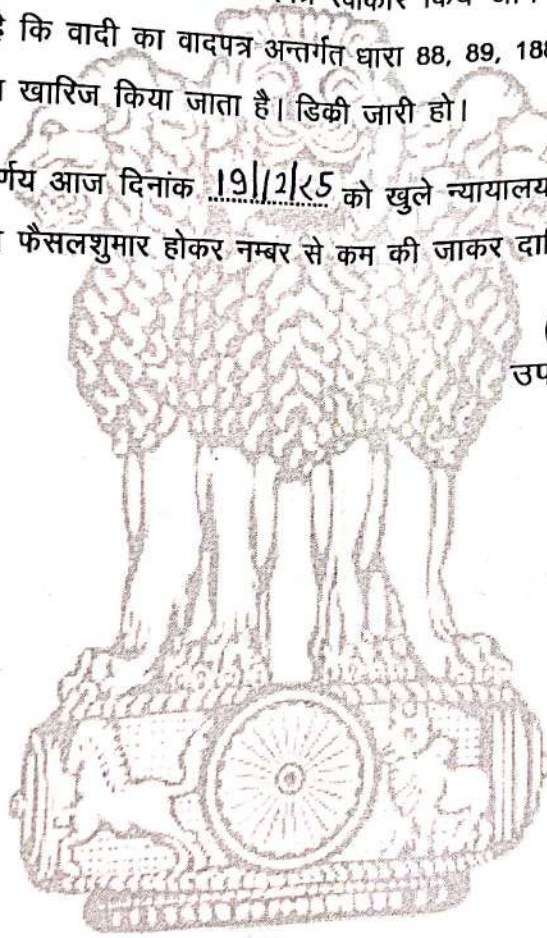 स्वीकार किये जाने
है कि वादी का वादपत्र अन्तर्गत धारा 88, 89, 188
खारिज किया जाता है। डिकी जारी हो।
र्णय आज दिनांक 19/12/25 को खुले न्यायालय
फैसलशुमार होकर नम्बर से कम की जाकर दा
(
उप